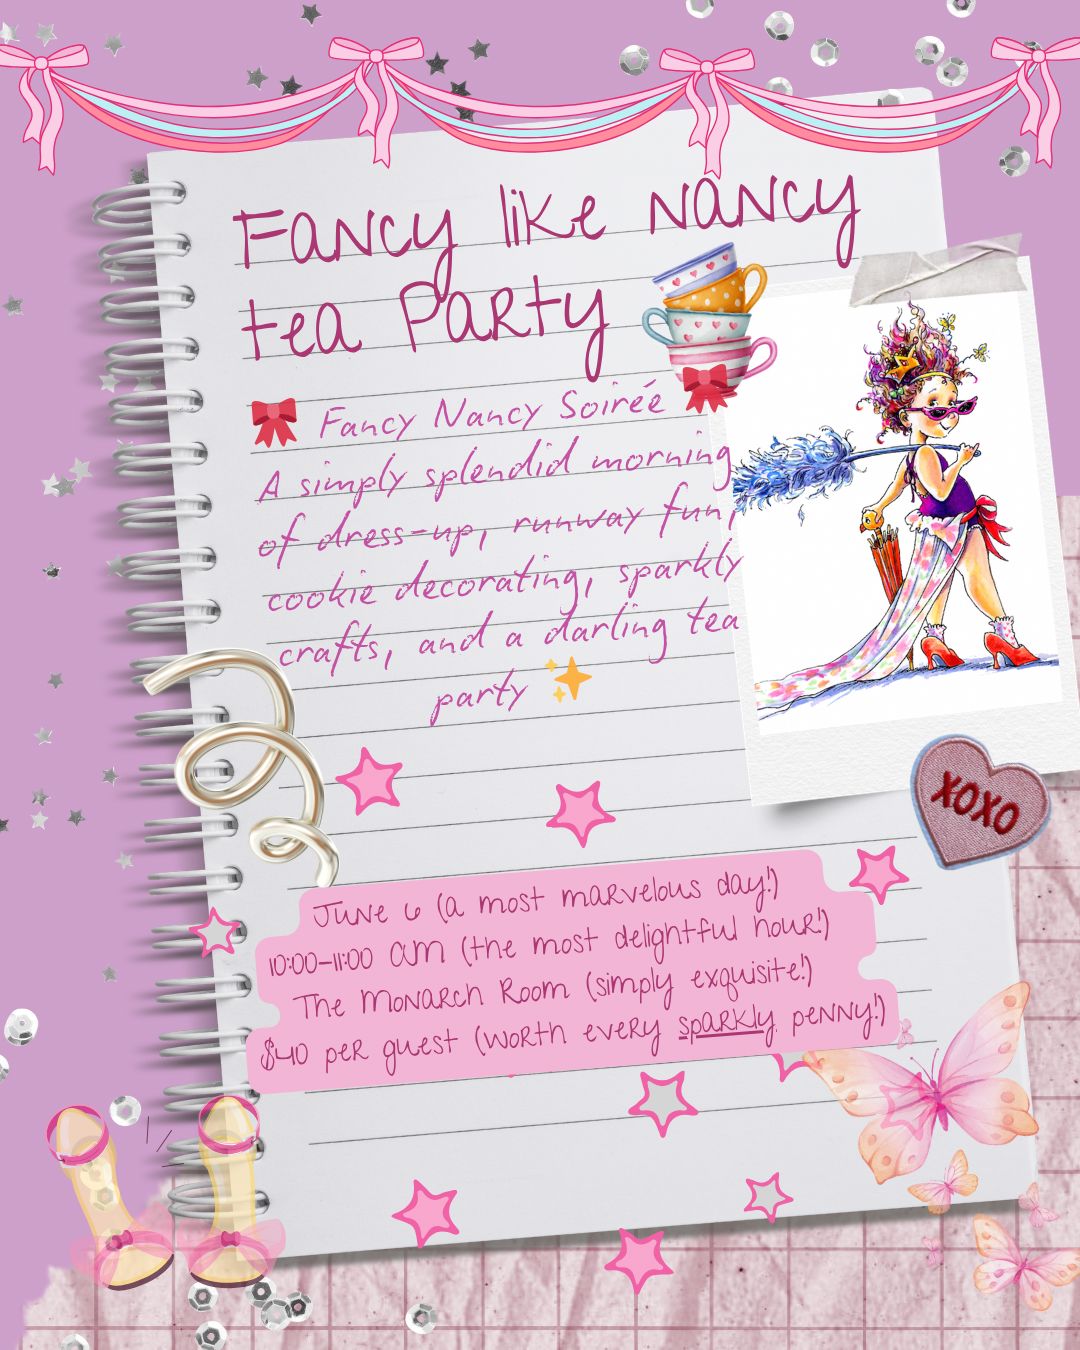 Fancy like Nancy
tea Party
🎀 Fancy Nancy Soireé 🎀
A simply splendid morning
of dress-up, runway fun,
cookie decorating, sparkly
crafts, and a darling tea
party ✨
XOXO
June 6 (a most marvelous day!)
10:00-11:00 AM (the most delightful hour!)
The Monarch Room (simply exquisite!)
$40 per guest (worth every sparkly penny!)